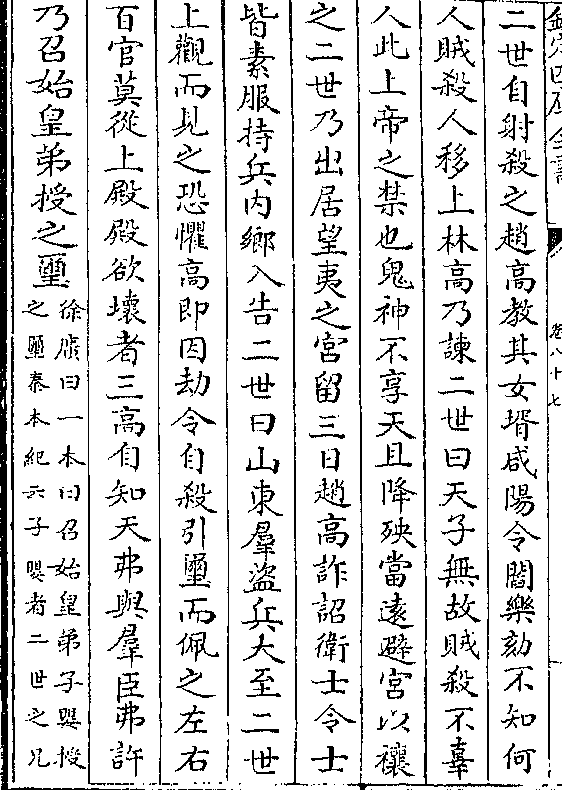 欽定四庫全書
卷八十七
二世自射殺之趙高教其女壻咸陽令閻樂劾不知何
人賊殺人移上林高乃諫二世曰天子無故賊殺不辜
人此上帝之禁也鬼神不享天且降殃當遠避宮以禳
之二世乃出居望夷之宮留三日趙高詐詔衛士令士
皆素服持兵内鄉入告二世曰山東羣盜兵大至二世
上觀而見之恐懼高即因劫令自殺引璽而佩之左右
百官莫從上殿殿欲壞者三高自知天弗與羣臣弗許
乃召始皇弟授之璽
徐廣曰一本曰召始皇弟子嬰授
之璽秦本紀云子嬰者二世之兄